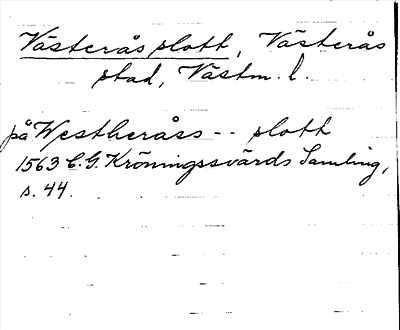 Västerås slott, Västerås
stad, Västm. l.
på Westheråss -- slott
1563 C. G. Kröningssvärds Samling,
s. 44.